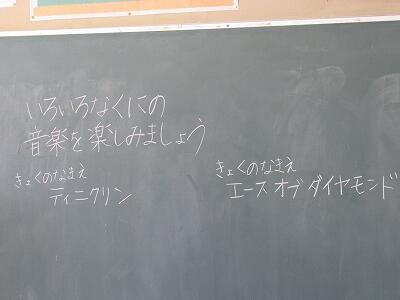 いろいろなくにの
音楽を楽しみましょう
きょくのなまえ
ティニクリン
きょくのなまえ
エース オブ ダイヤモンド